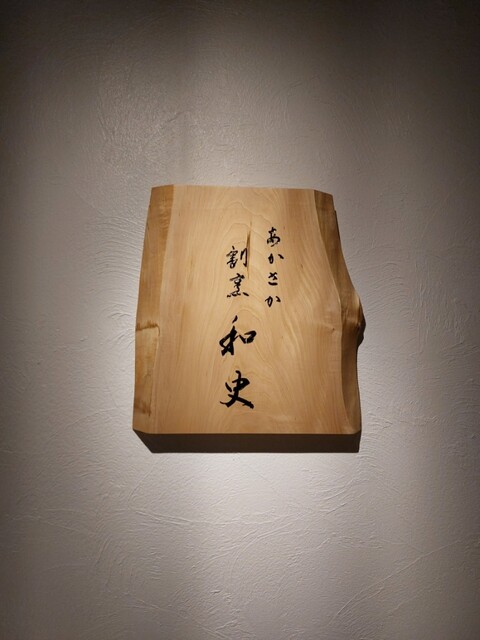 あかさか
割烹
和史